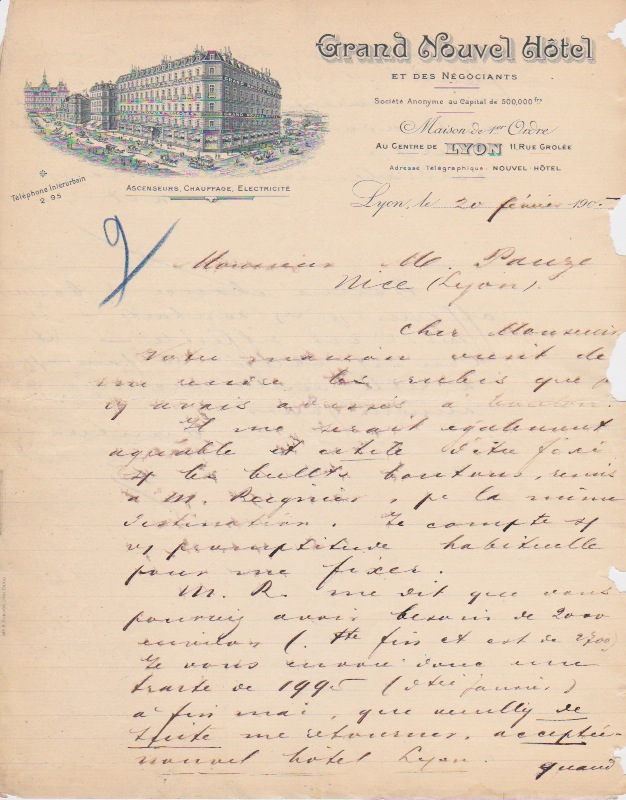 Grand Nouvel Hôtel
ET DES NÉGOCIANTS
Société Anonyme au Capital de 500,000 frs
Maison de 1er Ordre
AU CENTRE DE LYON 11, RUE GROLÉE
Adresse Télégraphique: NOUVEL-HÔTEL
Téléphone Interurbain
2.95
ASCENSEURS, CHAUFFAGE, ELECTRICITÉ
Lyon, le 20 février 1905
Monsieur M. Pauze
Nice (Lyon).
Cher Monsieur
Votre maison vient de
me rendre les rubis que je
vs avais adressés à
Il me serait également
agréable et utile d'être fixé
s/ les bulls boutons, remis
à M. Reignier, pr la même
destination. Je compte s/
vs promptitude habituelle
pour me fixer.
M. R. me dit que vous
pourriez avoir besoin de 2000
environ ( fin ct est de 2700)
Je vous envoie donc une
traite de 1995 ( janvier)
à fin mai, que veuillez de
suite me retourner, acceptée
nouvel hôtel Lyon.
quand